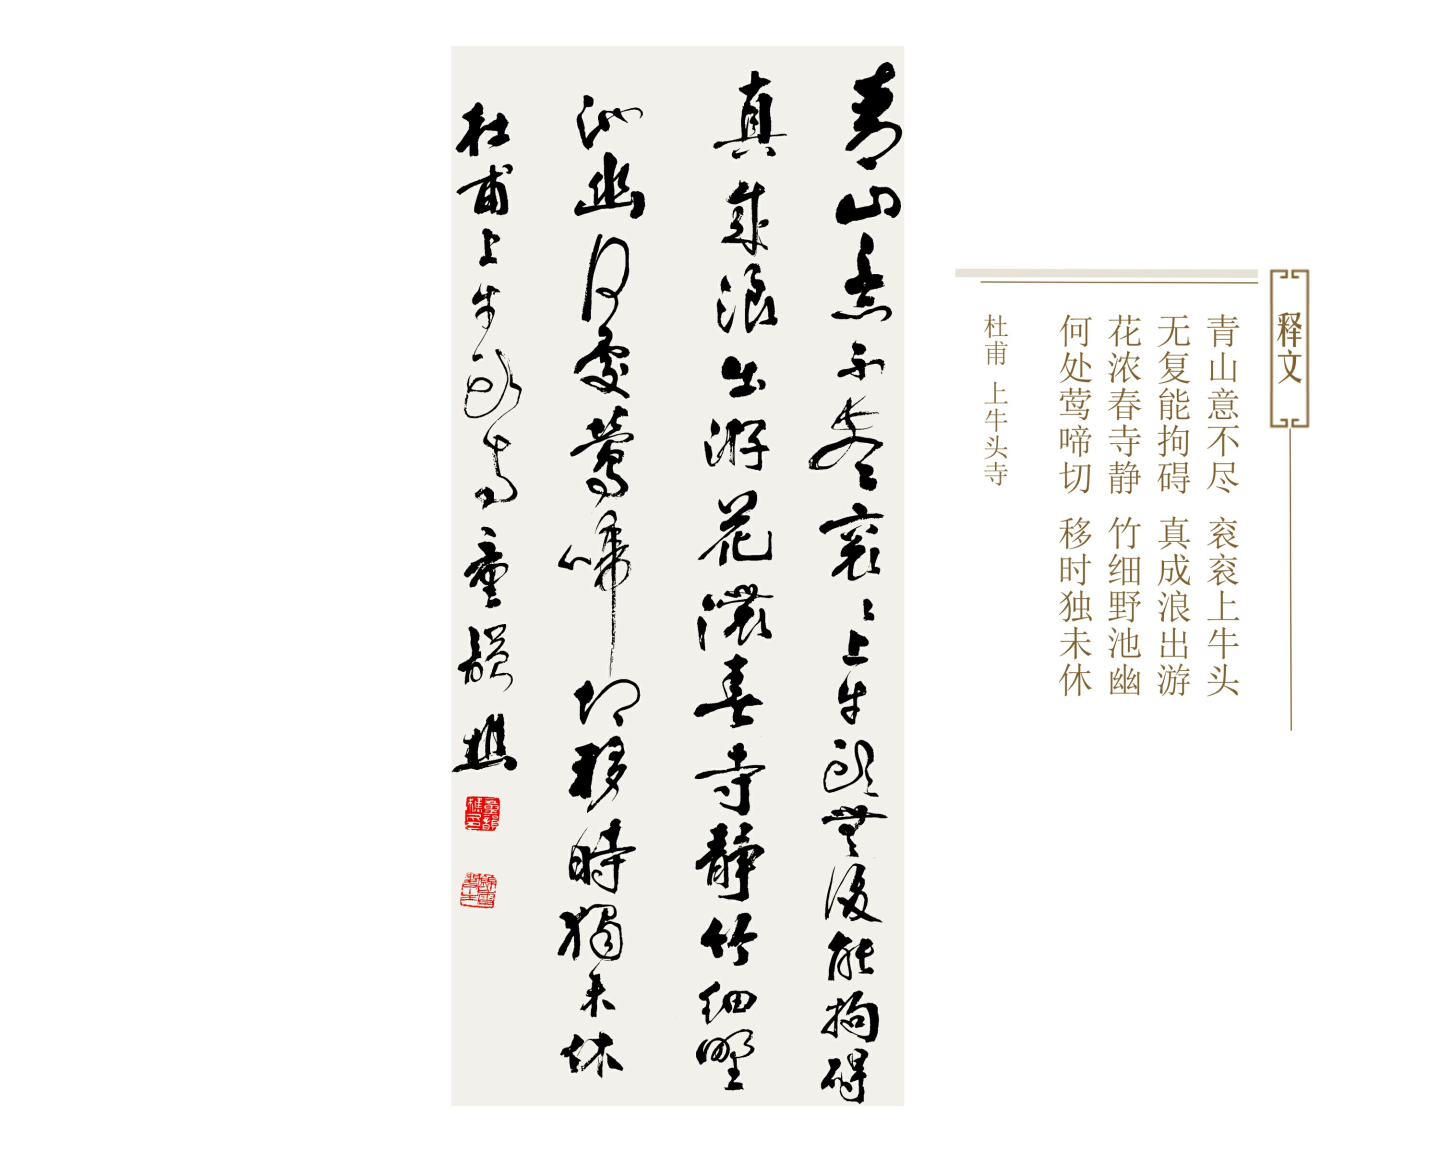 青山意不盡袞袞上牛頭無復能拘礙
真成浪出游花濃春寺靜竹細野
池幽何處鶯啼切移時獨未休
杜甫上牛頭寺
釋文
青山意不尽 衮衮上牛头
无复能拘碍 真成浪出游
花浓春寺静 竹细野池幽
何处莺啼切 移时独未休
杜甫 上牛头寺